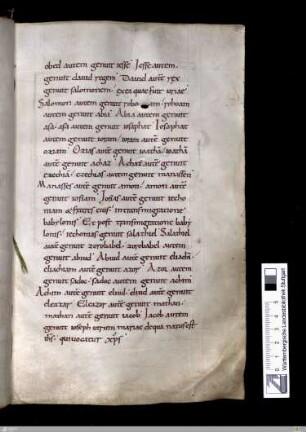 obed autem genuit iesse Iesse autem
genuit dauid regem Dauid aut rex
genuit salomonem ex ea que fuit uriae
Salomon autem genuit robo am roboam
autem genuit abia Abia autem genuit
asa asa autem genuit iosaphat Iosaphat
autem genuit ioram ioram aut genuit
oziam Ozias aut genuit ioatha ioatha
aut genuit achaz Achaz aut genuit
ezechia ezechias autem genuit manassen
Manasses aut genuit amon amon aut
genuit iosiam Iosias aut genuit iecho
niam & fratres eius in transmigratione
babylonis Et post transmigratione baby
lonis iechonias genuit salathiel Salathiel
aut genuit zorobabel zorobabel autem
genuit abiud Abiud aut genuit eliachi
eliachim aut genuit azor Azor autem
genuit sadoc sadoc autem genuit achim
Achim aut genuit eliud eliud aut genuit
eleazar Eleazar aut genuit mathan
mathan aut genuit iacob Iacob autem
genuit ioseph uirum mariae de qua natus est
ihs qui uocatur xps
Württembergische Landesbibliothek Stuttgart